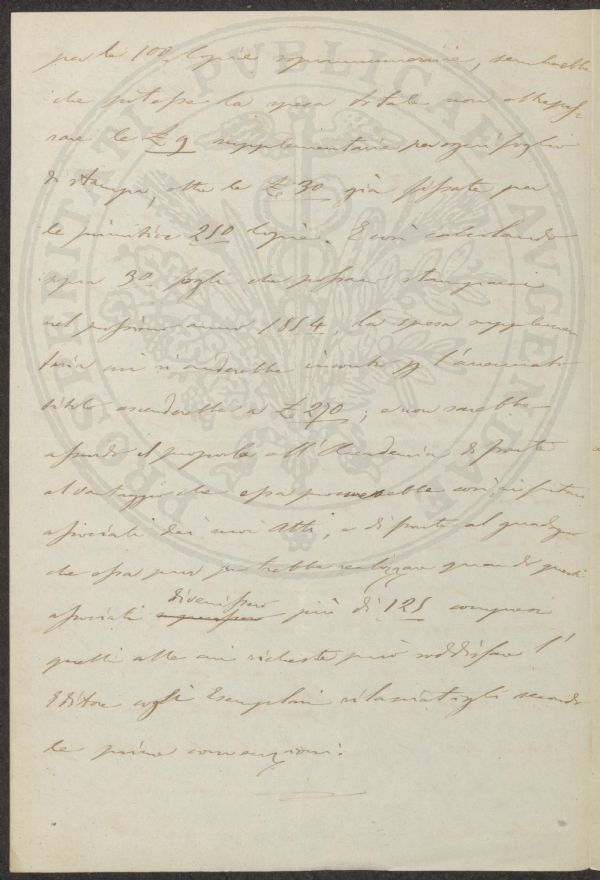 per le 100 Copie soprannumerarie, sembrerebbe
che potesse la spesa totale non oltrepas-
sare le £ 9 supplementarie per ogni foglio
di stampa, oltre le £ 30 già fissate per
le primitive 250 Copie. E così calcolando
sopra 30 fogli che possan stamparsi
nel prossimo anno 1854, la spesa supplemen
taria cui si anderebbe incontro per l'accennato
titolo ascenderebbe a £ 270; e non sarebbe
assurdo il proporla all'Accademia di fronte
al vantaggio che essa procurerebbe così
associati dei suoi Atti, e di fronte al guadagno
che essa pur potrebbe realizzare quando questi
associati divenissero più di 125 compresi
quelli alle cui richieste può soddisfare l'
Editore cogli Esemplari rilasciatigli secondo
le prime convenzioni.
PROSPERITATI PUBLICAE AUGENDAE